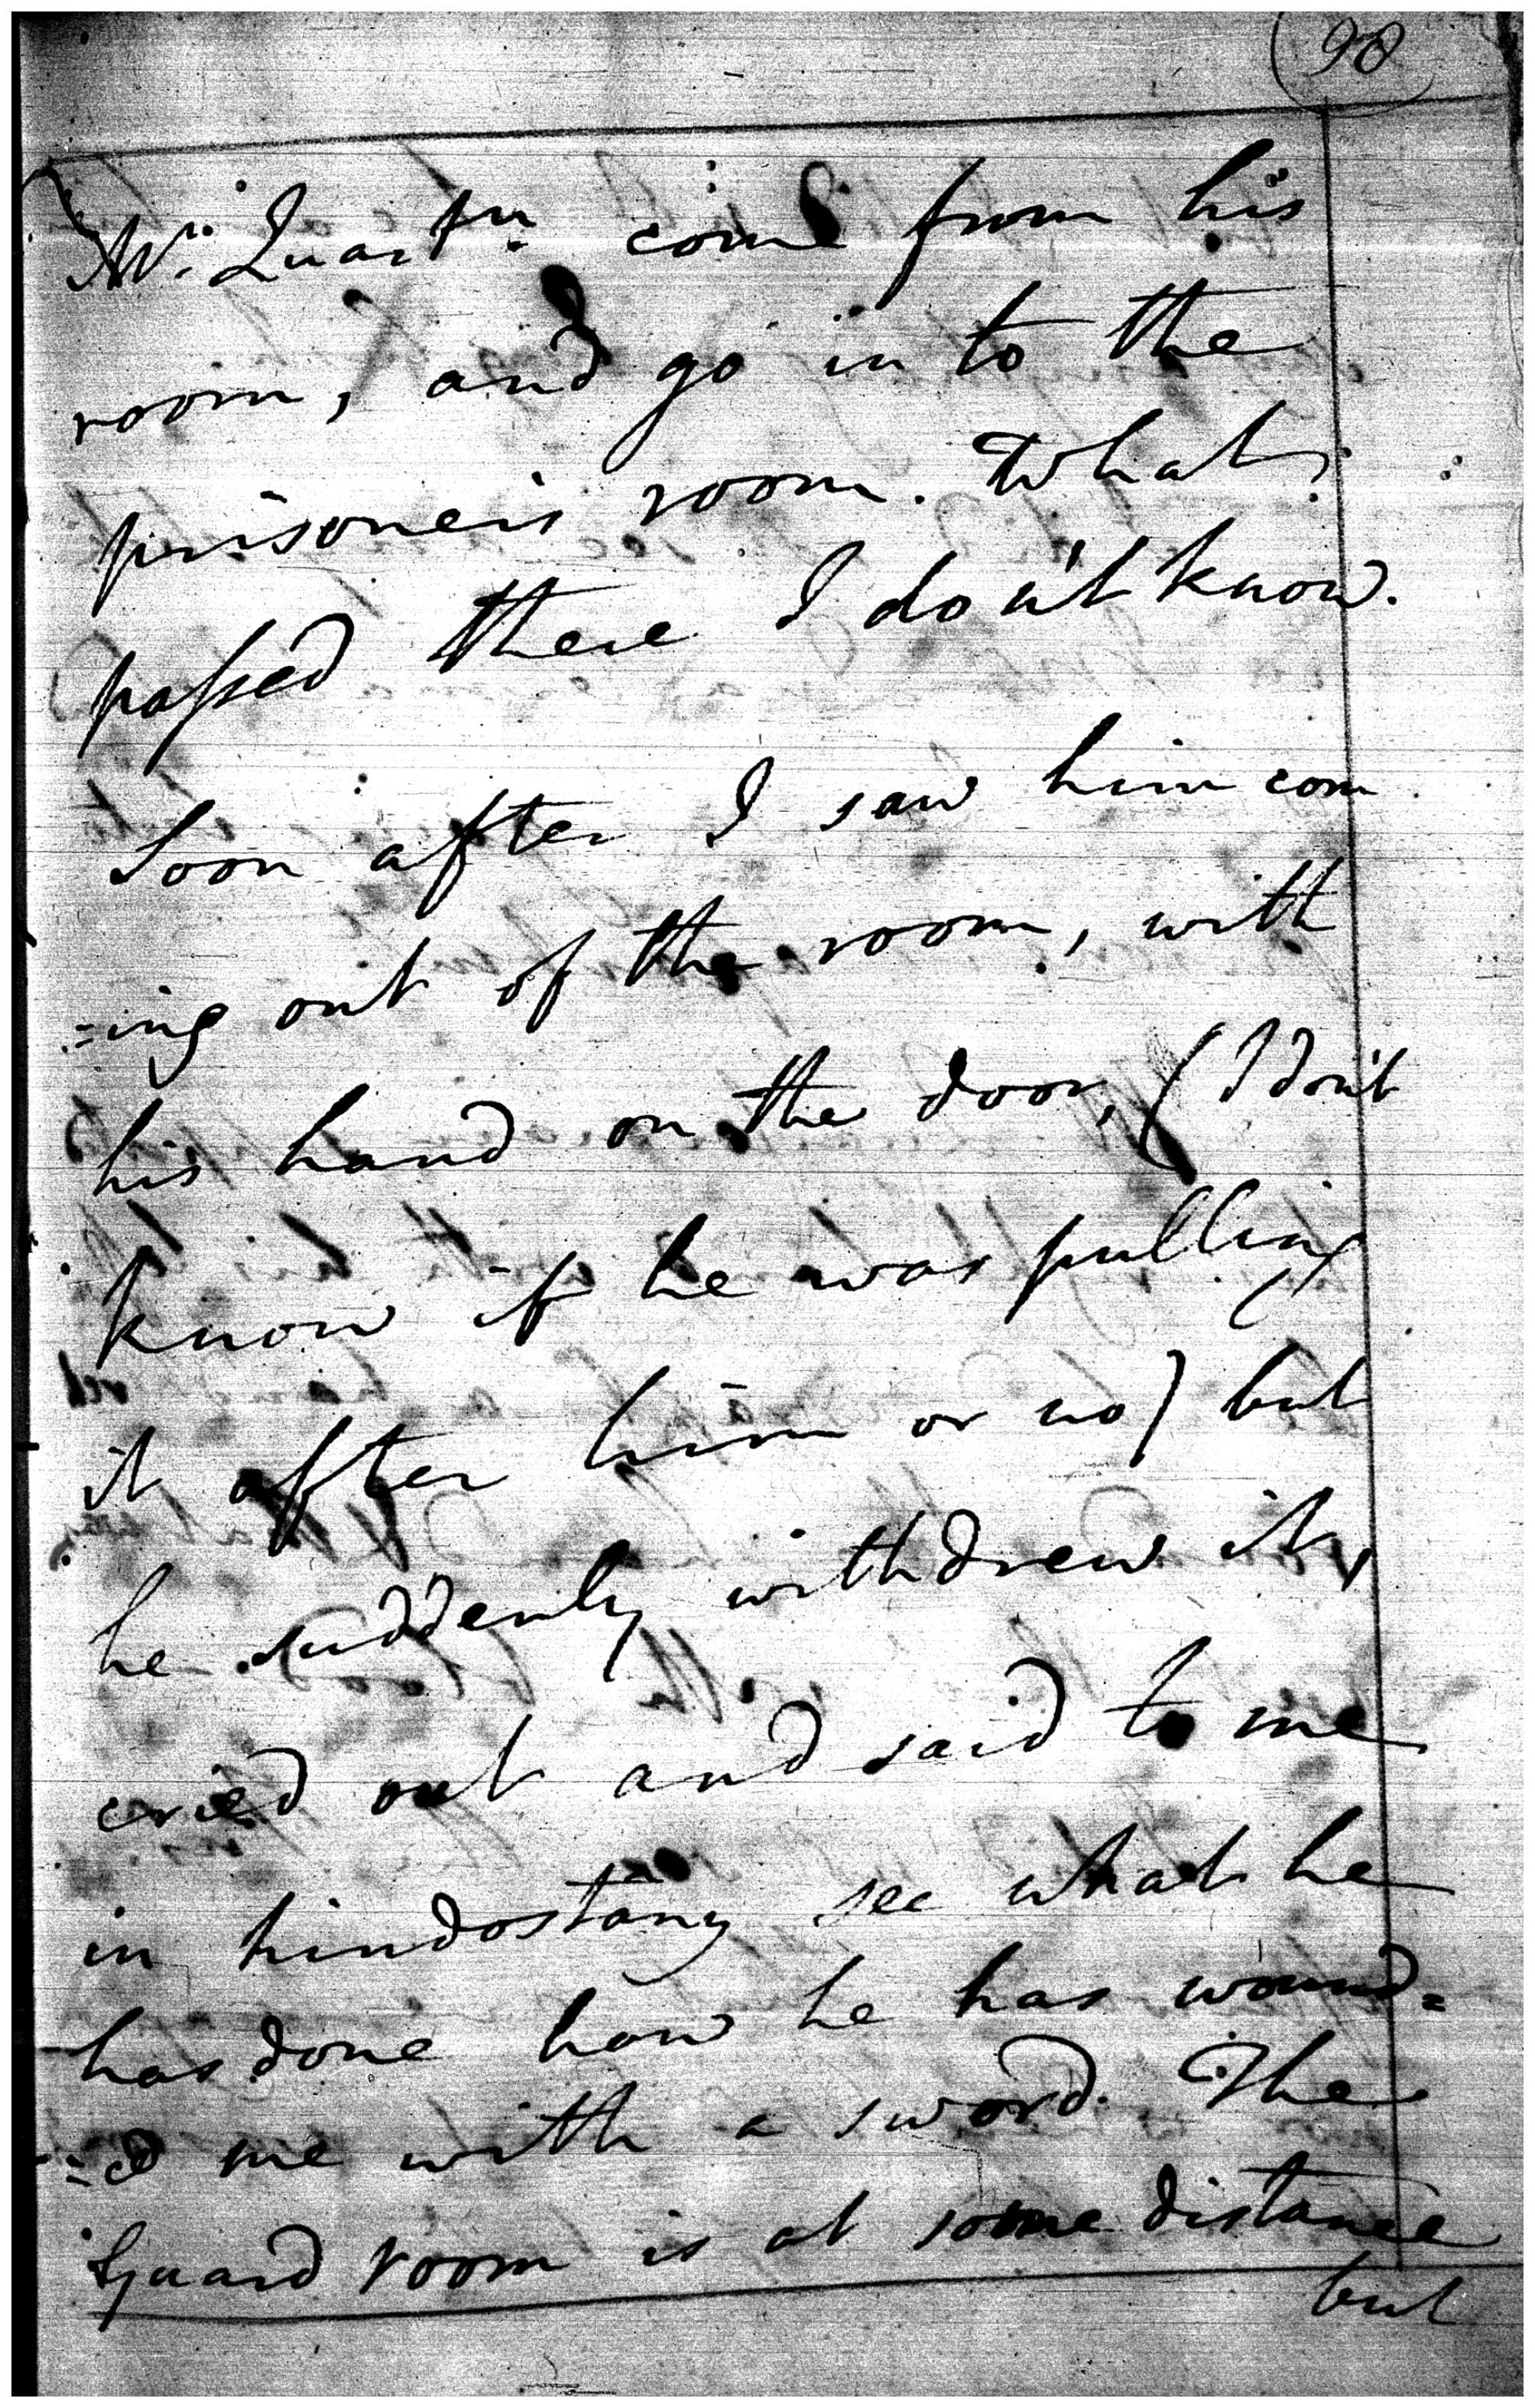 98
Mr. Quartr. come from his
room, and go in to the
prisoners room. What
passed there I don't know.
Soon after I saw him com
=ing out of the room, with
his hand on the door, (I don't
know if he was pulling
it after him or no) but
he suddenly withdrew it,
cried out and said to me
in hindostany see what he
has done how he has wound=
=ed me with a sword. The
Guard room is at some distance
but